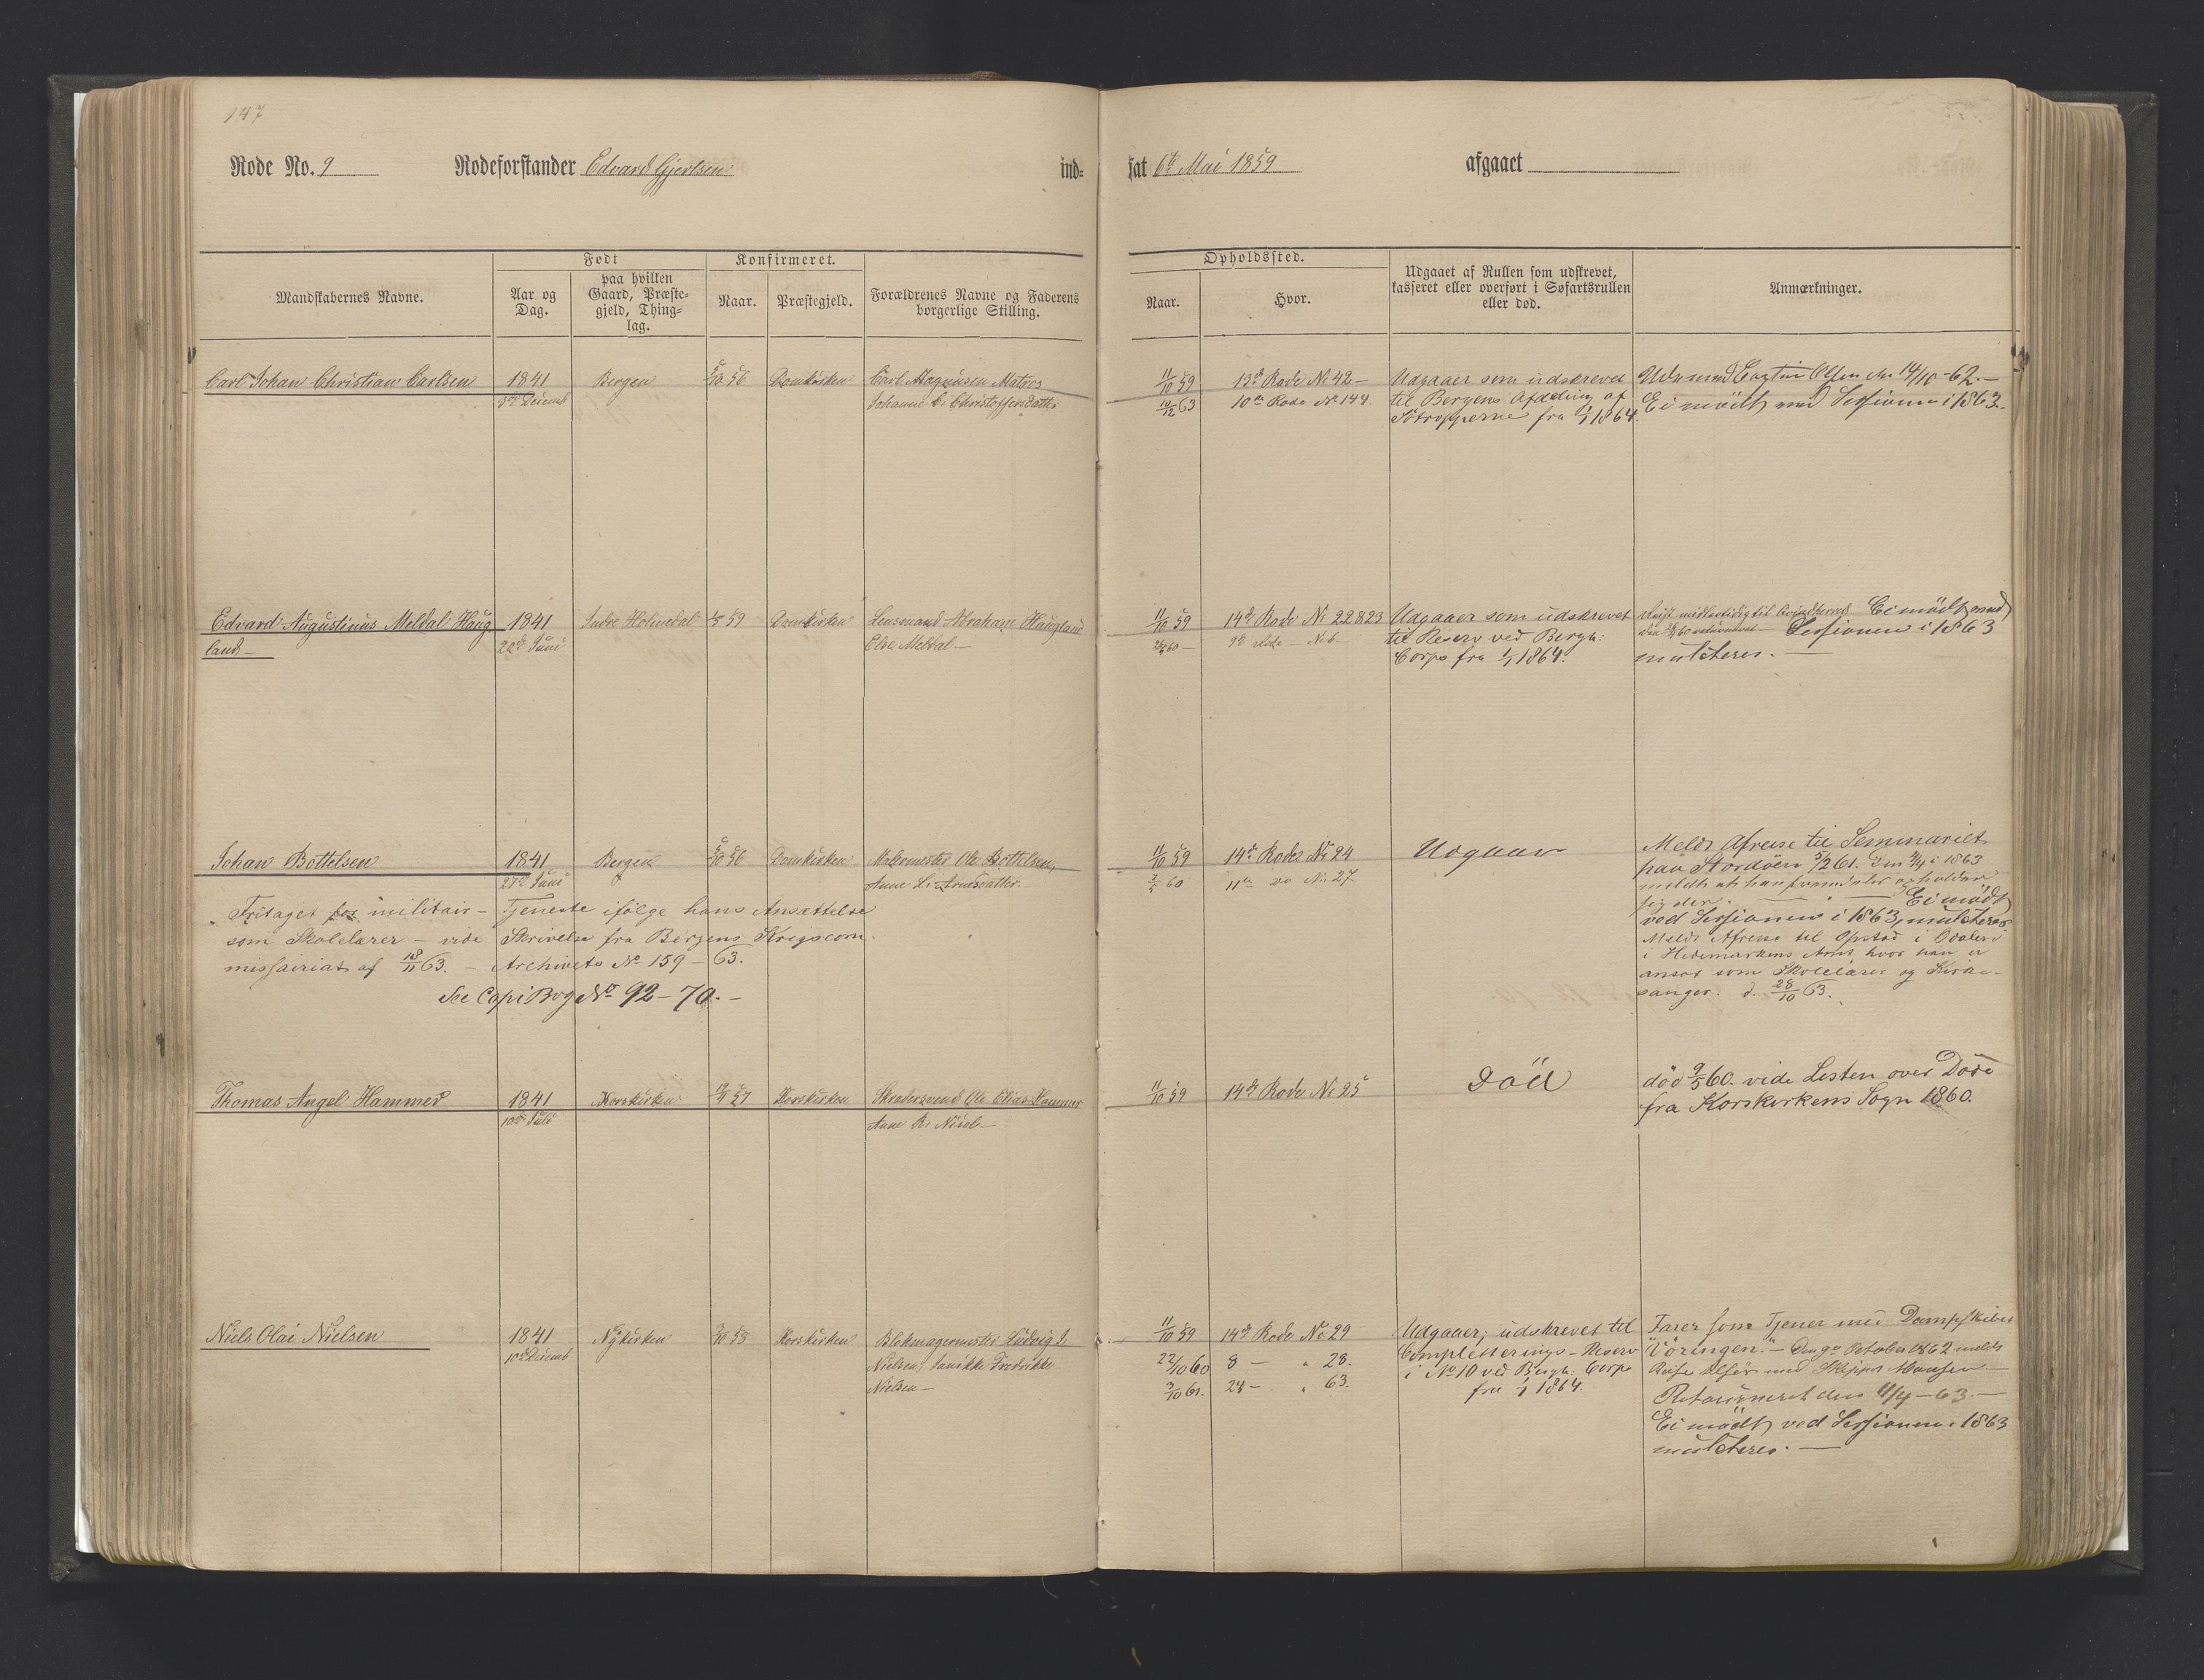 147
Rode No. 9 Rodeforstander Edvard Gjertsen ind-
sat 6te Mai 1859 afgaaet
Mandskabernes Navne.
Født
Aar og Dag.
paa hvilken Gaard, Præste-gjeld, Thing-lag.
Konfirmeret.
Naar. Præstegjeld.
Forældrenes Navne og Faderens borgerlige Stilling.
Opholdssted.
Naar. Hvor.
Udgaaet af Rullen som udskrevet, kasseret eller overført i Søfartsrullen eller død.
Anmærkninger.
Carl Johan Christian Carlsen 1841 Bergen 5/10 56 Domkirken Carl Magnusen Matros
3die Decemb Johanne C. Christoffersdatter
11/10 59 13de Rode No 42 – Udgaaer som udskrevet
10/12 63 10de Rode No 144 til Bergens Afdeling af
Søtropperne fra 1/1 1864.
Ude med Captein Olsen den 14/10 -62. –
Ei mödt ved Sessionen i 1863.
Edvard Augustinus Meldal Haug 1841 Indre Holmedal 59 Domkirken Lensmand Abraham Haugland
land – 22de Juni Else Meldal –
11/10 59 14de Rode No 22&23 Udgaaer som udskrevet
60 – 9de – No 6 til Reserv ved Bergh:
Corps fra 1/1 1864.
midlertidig til Ei mödt ved
Sessionen i 1863
mulcteres. –
Johan Bottelsen 1841 Bergen 5/10 56 Domkirken Malermester Ole Bottelsen,
27de Juni Anne L. Arnesdatter.
Fritaget for militair-Tjeneste ifölge hans Ansættelse
som Skolelærer – vide Skrivelse fra Bergens Krigscom-
missairiat af 18/11 63. – Archivets No 159 – 63.
See CopiBog No 92–70. –
11/10 59 14de Rode No 24 Udgaaer
60 11te do No 27
Meldt Afreise til Seminariet
paa Stordöen 5/2 61. Den i 1863
meldt at han fremdeles opholder
sig der. – Ei mödt
ved Sessionen i 1863, mulcteres
Meldt Afreise til Opstad i Odalen
i Hedemarkens Amt hvor han er
ansat som Skolelærer og Kirke-
sanger. d. 28/10 63.
Thomas Angel Hammer 1841 Korskirken 57 Korskirken Skrædersvend Ole Elias Hammer
10de Juli Anne
11/10 59 14de Rode No 25 Död
död 9/5 60. vide Listen over Döde
fra Korskirkens Sogn 1860.
Niels Olai Nielsen 1841 Nykirken 58 Korskirken Blokmagermester Ludvig J.
10de Decemb Nielsen, Fredrikke
Nielsen –
11/10 59 14de Rode No 29 Udgaaer, udskrevet til
22/10 60 8 – " 28. Completterings-Reserv
3/10 61. 24 – " 63. i No 10 ved Bergh: Corps
fra 1/1 1864.
Farer som Tjener med Dampskibet
"Vöringen". – Den October 1862 meldt
Reise med Skipper Hansen. –
Retourneret den 11/4 – 63. –
Ei mödt ved Sessionen i 1863
mulcteres. –